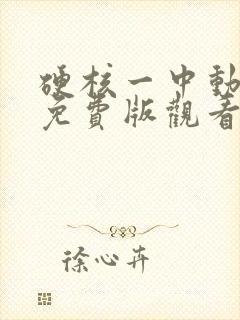 硬核一中動
免費版觀看
徐心卉